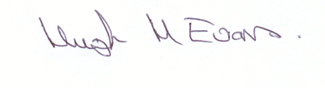 Hugh M Evans.